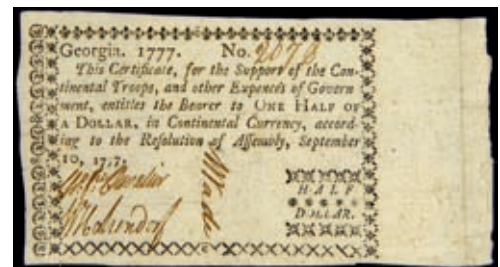 Georgia. 1777. No. 2078
This Certificate, for the Support of the Con-
tinental Troops, and other Expences of Govern
ment, entitles the Bearer to ONE HALF OF
A DOLLAR, in Continental Currency, accord-
ing to the Resolution of Assembly, September
10, 1777.
Wade
HALF
DOLLAR.